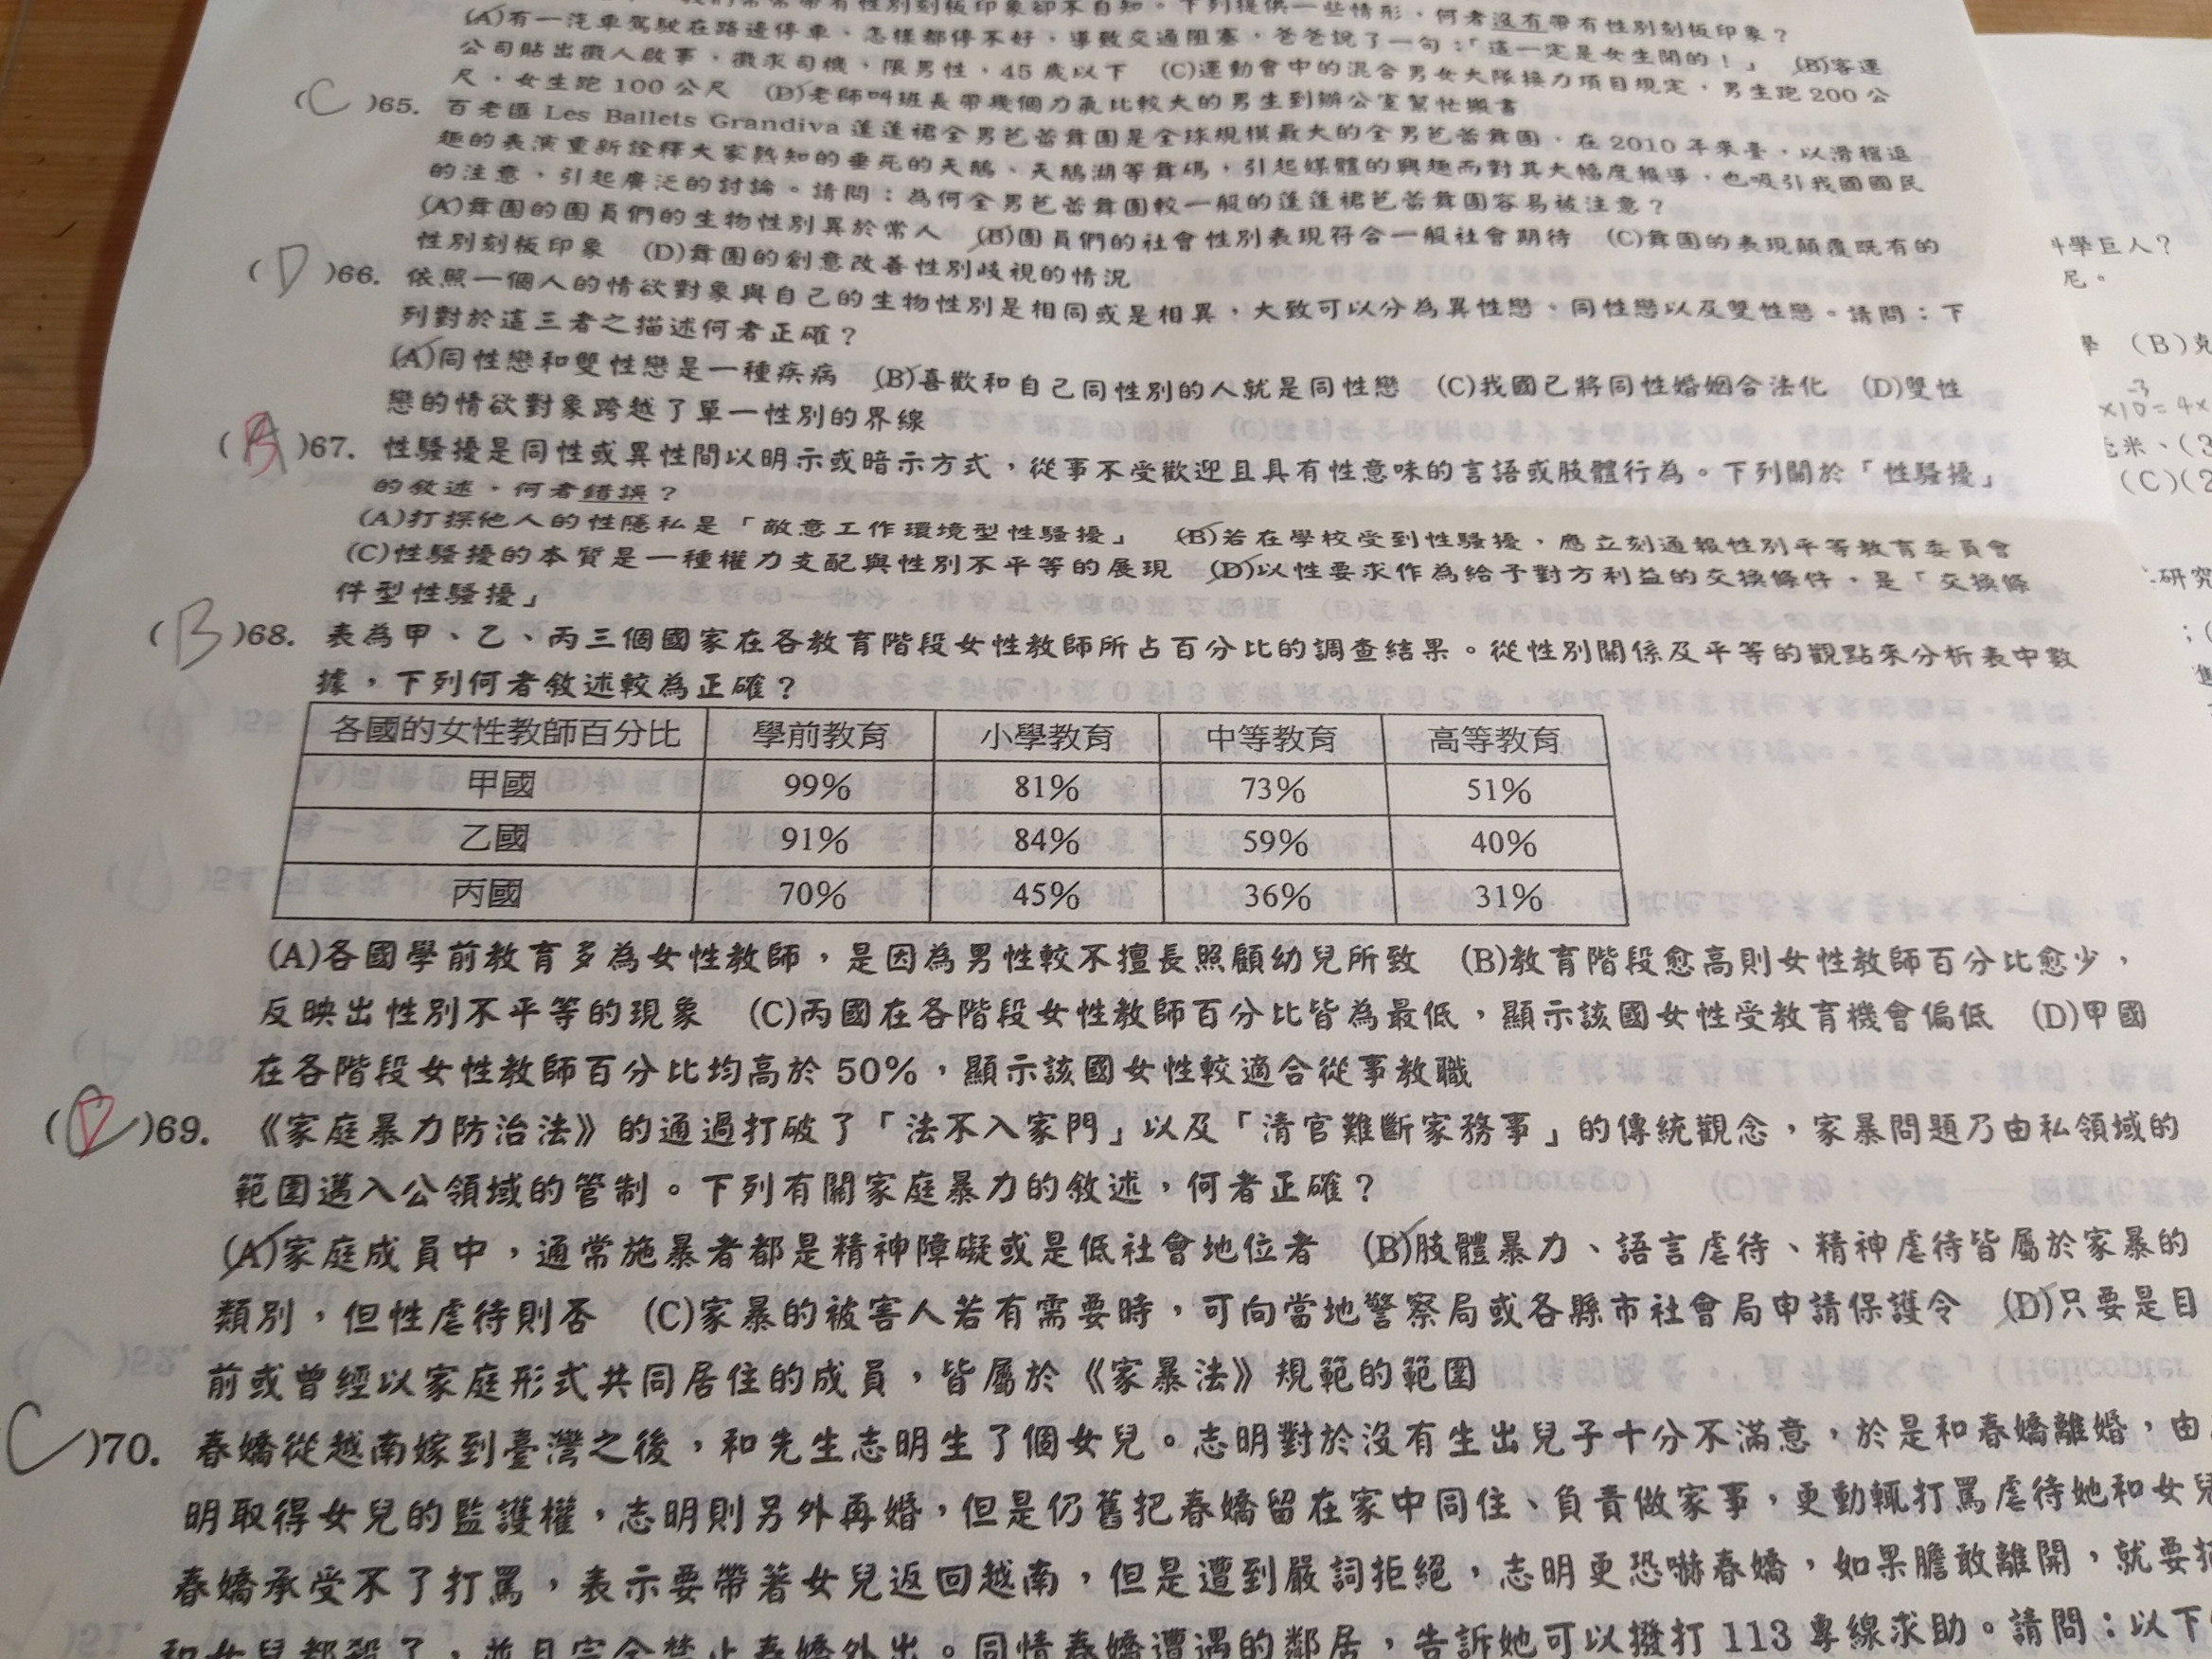 帶有性別刻板印象卻不自知。下列提供一些情形,何者沒有帶有性別刻板印象?
(A)有一汽車駕駛在路邊停車,怎樣都停不好,導致交通阻塞,爸爸說了一句:「這一定是女生開的!」 (B)客運
公司貼出徵人啟事,徵求司機,限男性,45歲以下 (C)運動會中的混合男女大隊接力項目規定,男生跑200公
尺,女生跑100公尺 (D)老師叫班長帶幾個力氣比較大的男生到辦公室幫忙搬書
(C)65. 百老匯 Les Ballets Grandiva 蓬蓬裙全男芭蕾舞團是全球規模最大的全男芭蕾舞團,在2010年來臺,以滑稽逗
趣的表演重新詮釋大家熟知的垂死的天鵝、天鵝湖等舞碼,引起媒體的興趣而對其大幅度報導,也吸引我國國民
的注意,引起廣泛的討論。請問:為何全男芭蕾舞團較一般的蓬蓬裙芭蕾舞團容易被注意?
(A)舞團的團員們的生物性別異於常人 (B)團員們的社會性別表現符合一般社會期待 (C)舞團的表現顛覆既有的
性別刻板印象 (D)舞團的創意改善性別歧視的情況
(D)66. 依照一個人的情欲對象與自己的生物性別是相同或是相異,大致可以分為異性戀、同性戀以及雙性戀。請問:下
列對於這三者之描述何者正確?
(A)同性戀和雙性戀是一種疾病 (B)喜歡和自己同性別的人就是同性戀 (C)我國已將同性婚姻合法化 (D)雙性
戀的情欲對象跨越了單一性別的界線
(B)67. 性騷擾是同性或異性間以明示或暗示方式,從事不受歡迎且具有性意味的言語或肢體行為。下列關於「性騷擾」
的敘述,何者錯誤?
(A)打探他人的性隱私是「敵意工作環境型性騷擾」 (B)若在學校受到性騷擾,應立刻通報性別平等教育委員會
(C)性騷擾的本質是一種權力支配與性別不平等的展現 (D)以性要求作為給予對方利益的交換條件,是「交換條
件型性騷擾」
(B)68. 表為甲、乙、丙三個國家在各教育階段女性教師所占百分比的調查結果。從性別關係及平等的觀點來分析表中數
據,下列何者敘述較為正確?
各國的女性教師百分比 學前教育 小學教育 中等教育 高等教育
甲國 99% 81% 73% 51%
乙國 91% 84% 59% 40%
丙國 70% 45% 36% 31%
(A)各國學前教育多為女性教師,是因為男性較不擅長照顧幼兒所致 (B)教育階段愈高則女性教師百分比愈少,
反映出性別不平等的現象 (C)丙國在各階段女性教師百分比皆為最低,顯示該國女性受教育機會偏低 (D)甲國
在各階段女性教師百分比均高於50%,顯示該國女性較適合從事教職
(D)69. 《家庭暴力防治法》的通過打破了「法不入家門」以及「清官難斷家務事」的傳統觀念,家暴問題乃由私領域的
範圍邁入公領域的管制。下列有關家庭暴力的敘述,何者正確?
(A)家庭成員中,通常施暴者都是精神障礙或是低社會地位者 (B)肢體暴力、語言虐待、精神虐待皆屬於家暴的
類別,但性虐待則否 (C)家暴的被害人若有需要時,可向當地警察局或各縣市社會局申請保護令 (D)只要是目
前或曾經以家庭形式共同居住的成員,皆屬於《家暴法》規範的範圍
C)70. 春嬌從越南嫁到臺灣之後,和先生志明生了個女兒。志明對於沒有生出兒子十分不滿意,於是和春嬌離婚,由
明取得女兒的監護權,志明則另外再婚,但是仍舊把春嬌留在家中同住、負責做家事,更動輒打罵虐待她和女兒
春嬌承受不了打罵,表示要帶著女兒返回越南,但是遭到嚴詞拒絕,志明更恐嚇春嬌,如果膽敢離開,就要把
和女兒都殺了,並且完全禁止春嬌外出。同情春嬌遭遇的鄰居,告訴她可以撥打113專線求助。請問:以下
科學巨人?
尼。
學 (B)克
×10⁻³=4×
毫米、(3
(C)(2
研究